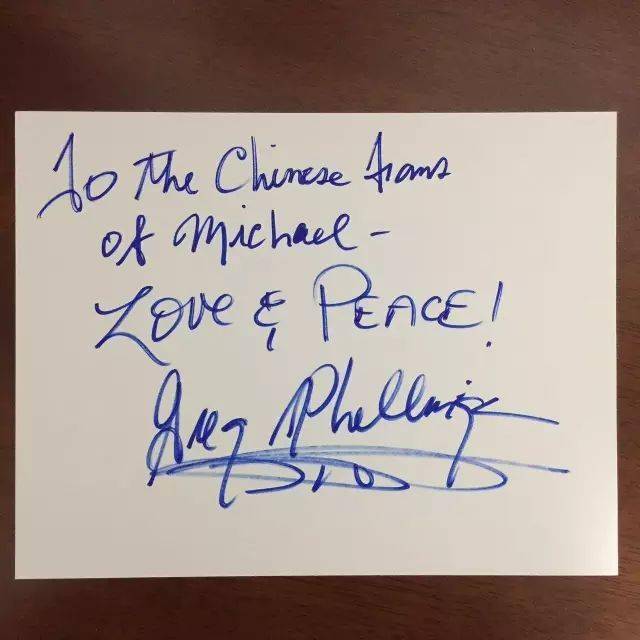 To the Chinese Fans
of Michael -
LOVE & PEACE!
Greg Phillinganes